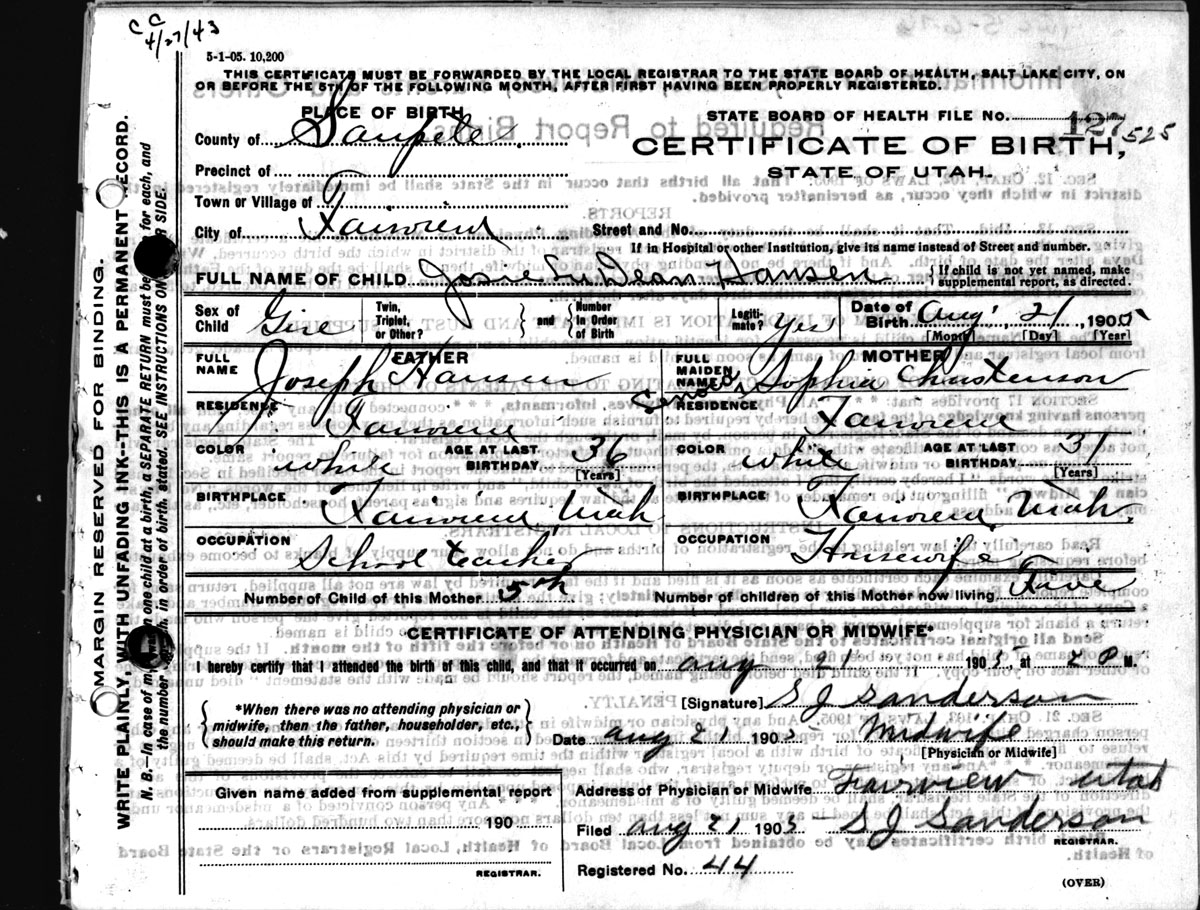 C C
4/27/43
5-1-05. 10,200
THIS CERTIFICATE MUST BE FORWARDED BY THE LOCAL REGISTRAR TO THE STATE BOARD OF HEALTH, SALT LAKE CITY, ON
OR BEFORE THE 5TH OF THE FOLLOWING MONTH, AFTER FIRST HAVING BEEN PROPERLY REGISTERED.
PLACE OF BIRTH
STATE BOARD OF HEALTH FILE No. 127 525
County of Sanpete
CERTIFICATE OF BIRTH,
Precinct of
STATE OF UTAH.
Town or Village of
City of Fairview Street and No.
If in Hospital or other Institution, give its name instead of Street and number.
FULL NAME OF CHILD Josie Dean Hansen {If child is not yet named, make supplemental report, as directed.
Sex of Child Twin, Triplet, or Other? } and { Number in Order of Birth Legiti-mate? Yes Date of Birth Aug. 21, 1905
[Month] [Day] [Year]
FATHER MOTHER
FULL NAME Joseph Hansen FULL MAIDEN NAME Sophia Christenson
RESIDENCE Fairview RESIDENCE Fairview
COLOR white AGE AT LAST BIRTHDAY 36 [Years] COLOR white AGE AT LAST BIRTHDAY 31 [Years]
BIRTHPLACE Fairview, Utah BIRTHPLACE Fairview, Utah.
OCCUPATION School teacher OCCUPATION Housewife
Number of Child of this Mother 5th Number of children of this Mother now living Five
CERTIFICATE OF ATTENDING PHYSICIAN OR MIDWIFE*
I hereby certify that I attended the birth of this child, and that it occurred on aug 21 1905 at 2 P M.
{ *When there was no attending physician or midwife, then the father, householder, etc., should make this return. }
[Signature] S J Sanderson
Date aug 21 1905 Midwife
[Physician or Midwife]
Given name added from supplemental report
Address of Physician or Midwife Fairview Utah
190
Filed aug 21 1905 S J Sanderson
REGISTRAR.
REGISTRAR.
Registered No. 44
(OVER)
MARGIN RESERVED FOR BINDING.
WRITE PLAINLY, WITH UNFADING INK--THIS IS A PERMANENT RECORD.
N. B.--In case of more than one child at a birth, a SEPARATE RETURN must be made for each, and
the number of each, in order of birth, stated. SEE INSTRUCTIONS ON OTHER SIDE.